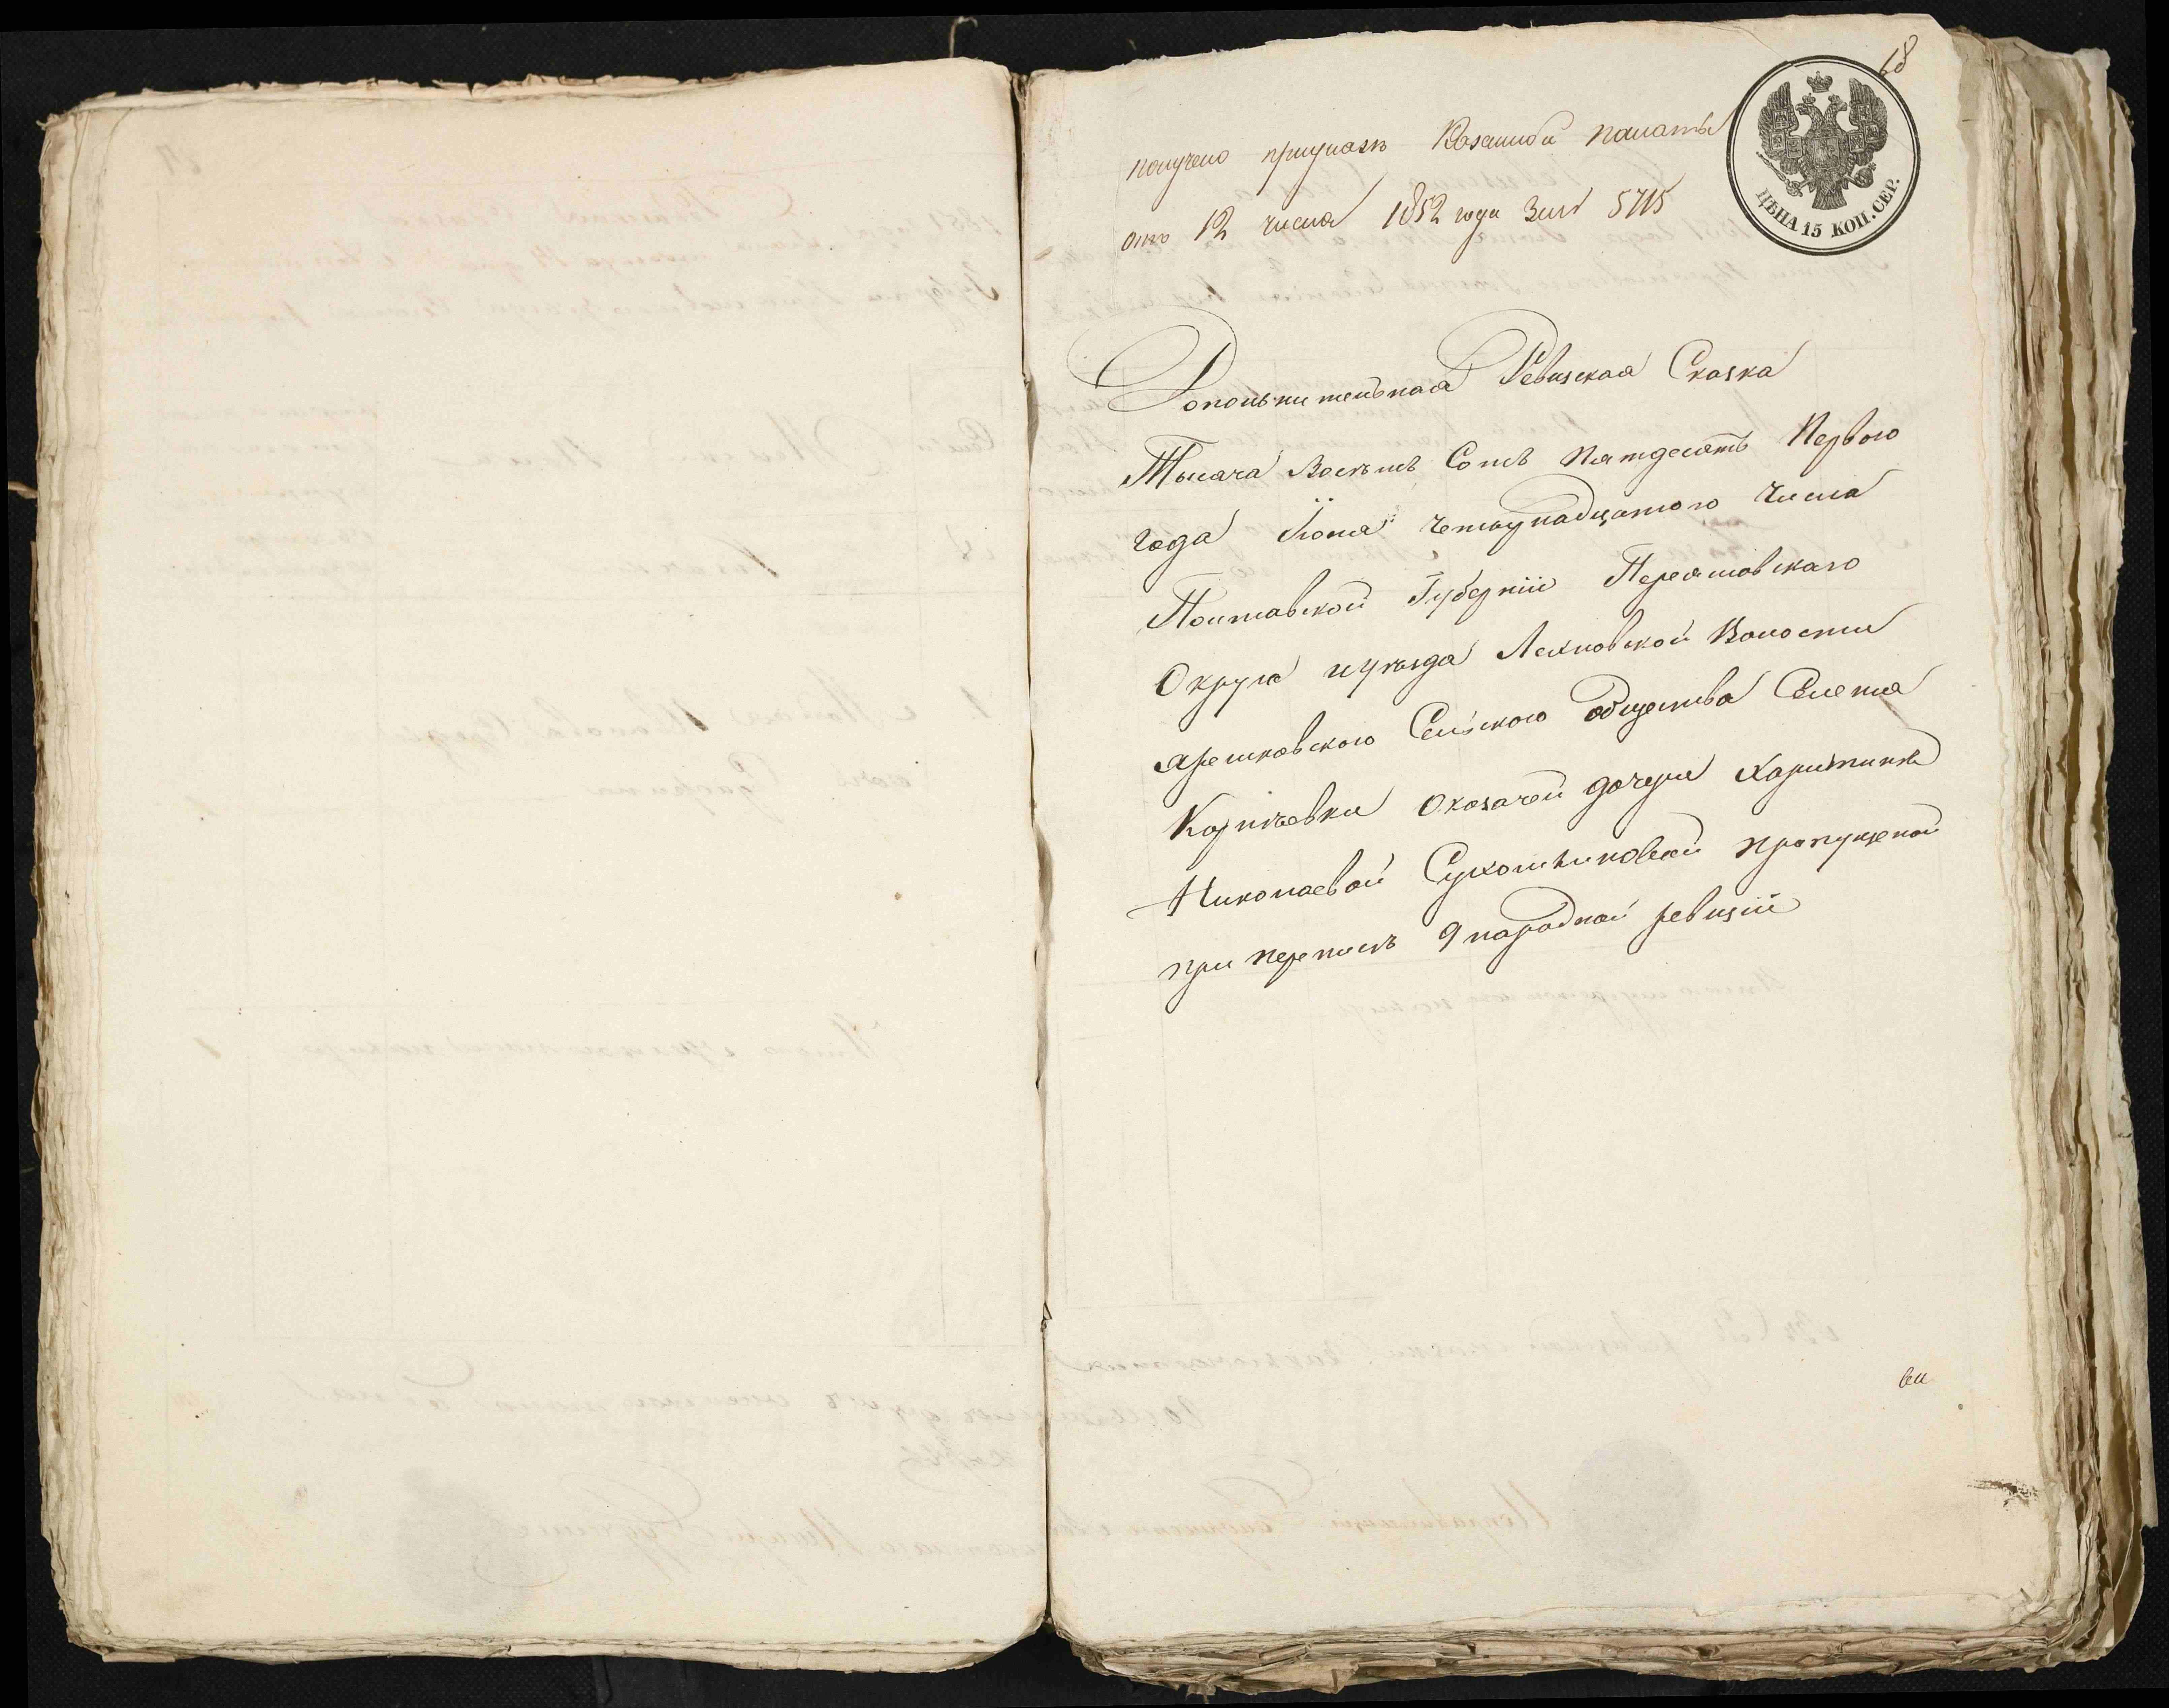 68
получено при указе Казенной палаты
отъ 12 числа 1852 года за № 5715
ЦѢНА 15 КОП. СЕР.
Дополнительная Ревизская Сказка
Тысяча Восемь Сотъ Пятдесятъ Первого
года Іюня четырнадцатого Числа
Полтавской Губерніи Переяловского
Округа и уезда Лехновской Волости
Ярешковского Сельского общества Селенія
Корнѣевки О казачей дочери Харитинѣ
Николаевой пропущеной
при переписѣ 9 народной ревизіи